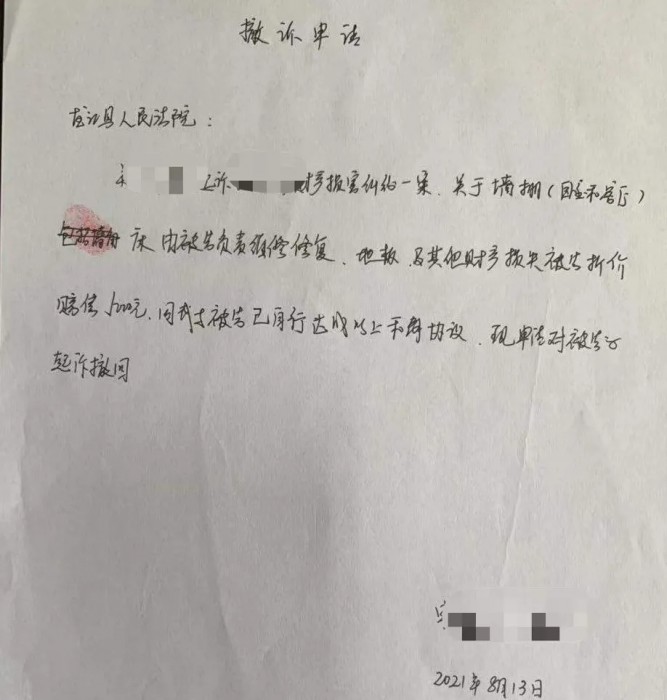 撤诉申请
龙江县人民法院：
上诉 财产损害纠纷一案，关于墙棚（固定和客厅）
床 由被告负责维修修复、地板，及其他财产损失被告折价
赔偿 元，因我与被告已自行达成以上和解协议，现申请对被告的
起诉撤回
2021年8月13日